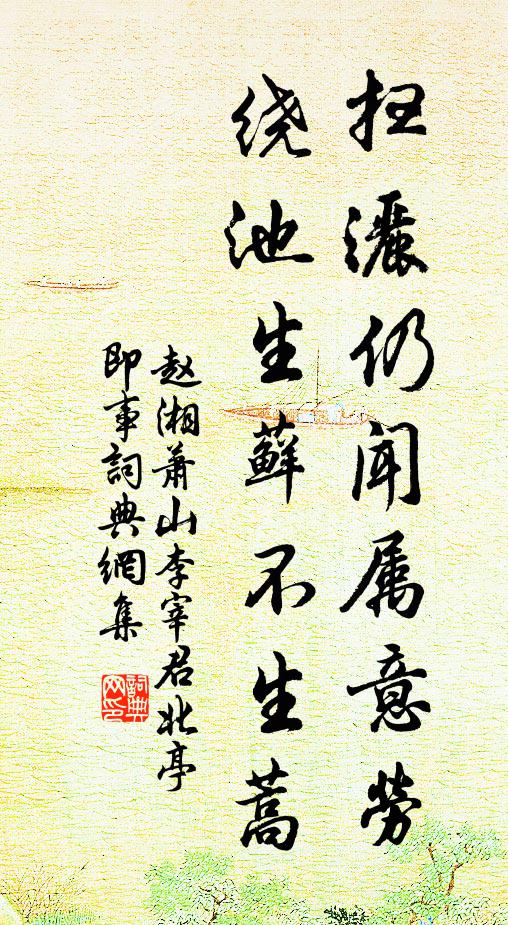 扫灑仍闻属意勞
绕池生蘚不生蒿
赵湘萧山李宰君北亭
即事詞典網集
詞典
网印